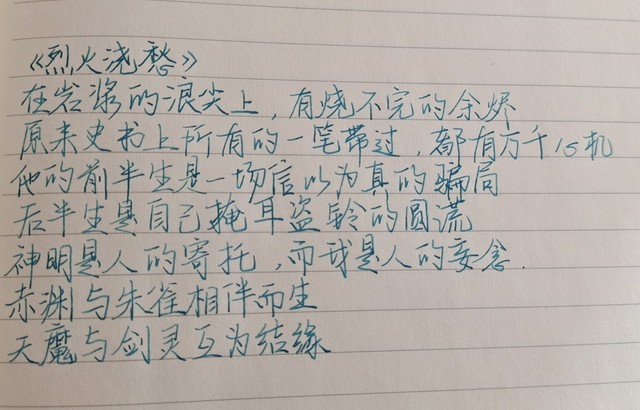 《烈火浇愁》
在岩浆的浪尖上，有烧不完的余烬
原来史书上所有的一笔带过，都有万千心机
他的前半生是一场信以为真的骗局
后半生是自己掩耳盗铃的圆谎
神明是人的寄托，而我是人的妄念.
赤渊与朱雀相伴而生
天魔与剑灵互为结缘